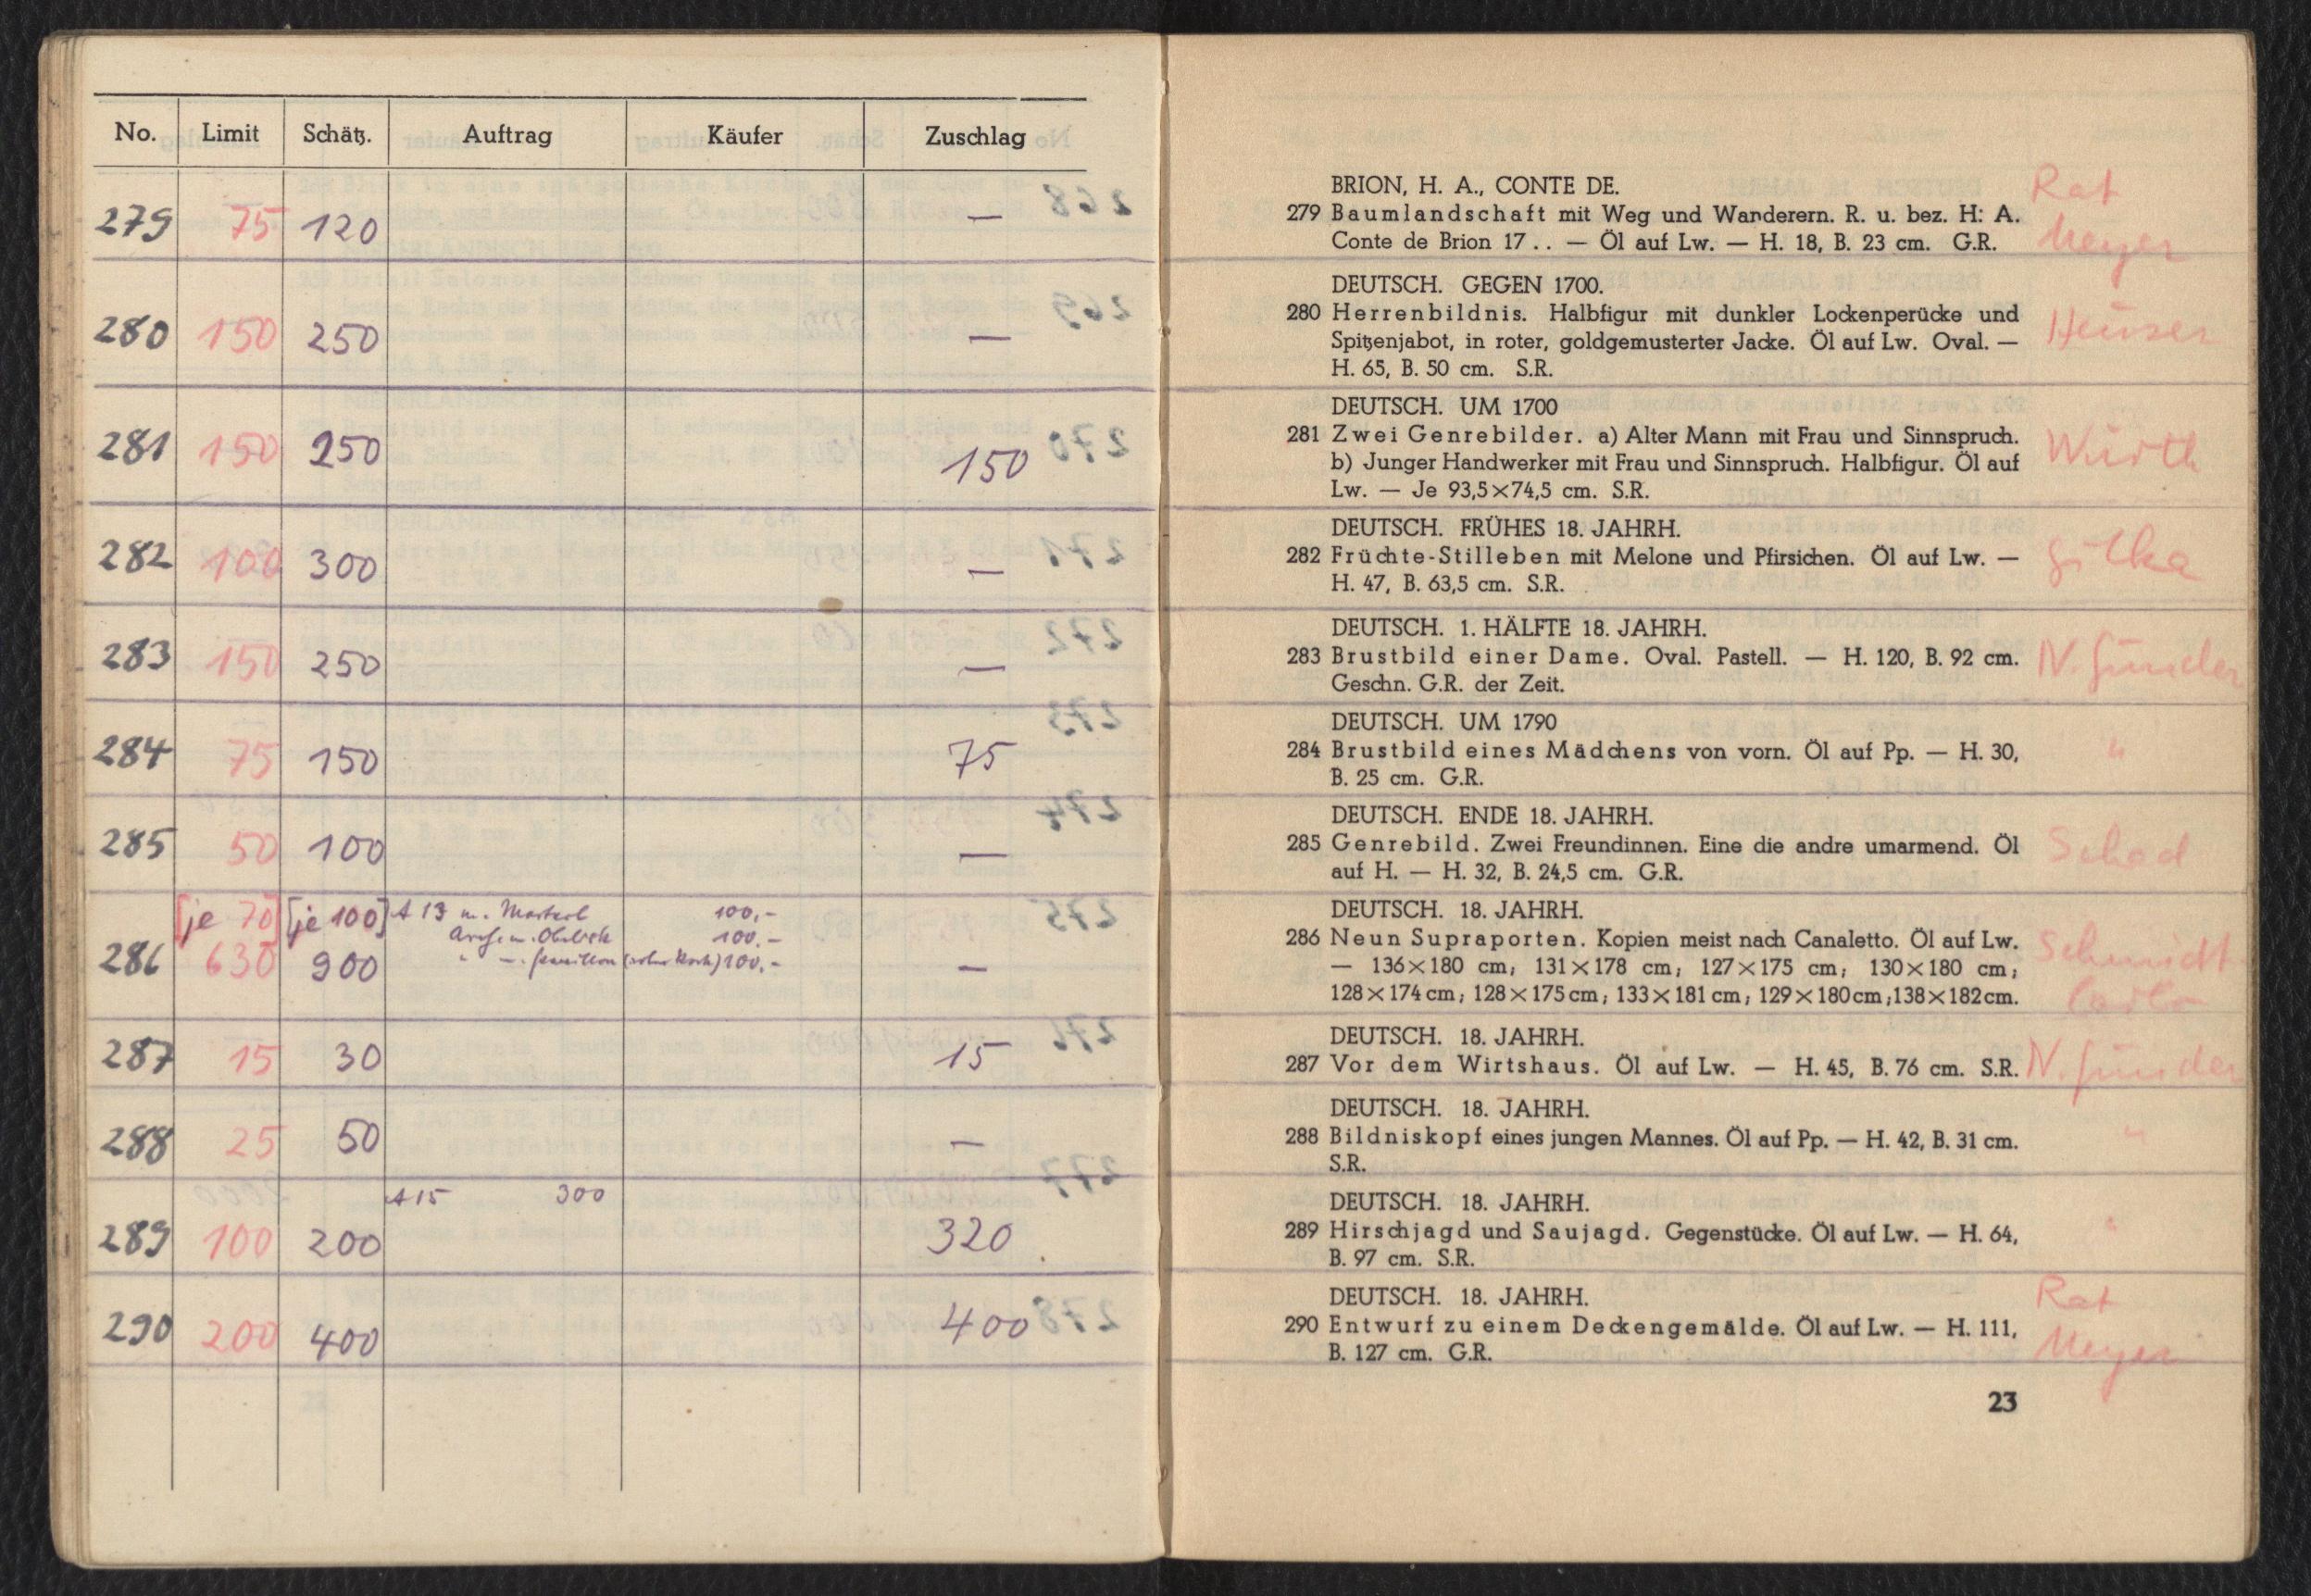 No. Limit Schätz. Auftrag Käufer Zuschlag
279 75 120 —
280 150 250 —
281 150 250 150
282 100 300 —
283 150 250 —
284 75 150 75
285 50 100 —
[je 70] [je 100] A 13 100,-
100.-
286 630 900 100.- —
287 15 30 15
288 25 50 —
A 15 300
289 100 200 320
290 200 400 400
BRION, H. A., CONTE DE. Rat
279 Baumlandschaft mit Weg und Wanderern. R. u. bez. H: A. Meyer
Conte de Brion 17 . . — Öl auf Lw. — H. 18, B. 23 cm. G.R.
DEUTSCH. GEGEN 1700.
280 Herrenbildnis. Halbfigur mit dunkler Lockenperücke und Heuser
Spitzenjabot, in roter, goldgemusterter Jacke. Öl auf Lw. Oval. —
H. 65, B. 50 cm. S.R.
DEUTSCH. UM 1700
281 Zwei Genrebilder. a) Alter Mann mit Frau und Sinnspruch. Würth
b) Junger Handwerker mit Frau und Sinnspruch. Halbfigur. Öl auf
Lw. — Je 93,5×74,5 cm. S.R.
DEUTSCH. FRÜHES 18. JAHRH.
282 Früchte-Stilleben mit Melone und Pfirsichen. Öl auf Lw. — Gilka
H. 47, B. 63,5 cm. S.R.
DEUTSCH. 1. HÄLFTE 18. JAHRH.
283 Brustbild einer Dame. Oval. Pastell. — H. 120, B. 92 cm. N. Günder
Geschn. G.R. der Zeit.
DEUTSCH. UM 1790
284 Brustbild eines Mädchens von vorn. Öl auf Pp. — H. 30, "
B. 25 cm. G.R.
DEUTSCH. ENDE 18. JAHRH.
285 Genrebild. Zwei Freundinnen. Eine die andre umarmend. Öl Schad
auf H. — H. 32, B. 24,5 cm. G.R.
DEUTSCH. 18. JAHRH.
286 Neun Supraporten. Kopien meist nach Canaletto. Öl auf Lw. Schmidt
— 136×180 cm; 131×178 cm; 127×175 cm; 130×180 cm;
128×174 cm; 128×175 cm; 133×181 cm; 129×180 cm; 138×182 cm. Carlo
DEUTSCH. 18. JAHRH.
287 Vor dem Wirtshaus. Öl auf Lw. — H. 45, B. 76 cm. S.R. N. Günder
DEUTSCH. 18. JAHRH.
288 Bildniskopf eines jungen Mannes. Öl auf Pp. — H. 42, B. 31 cm. "
S.R.
DEUTSCH. 18. JAHRH.
289 Hirschjagd und Saujagd. Gegenstücke. Öl auf Lw. — H. 64, "
B. 97 cm. S.R.
DEUTSCH. 18. JAHRH. Rat
290 Entwurf zu einem Deckengemälde. Öl auf Lw. — H. 111, Meyer
B. 127 cm. G.R.
23